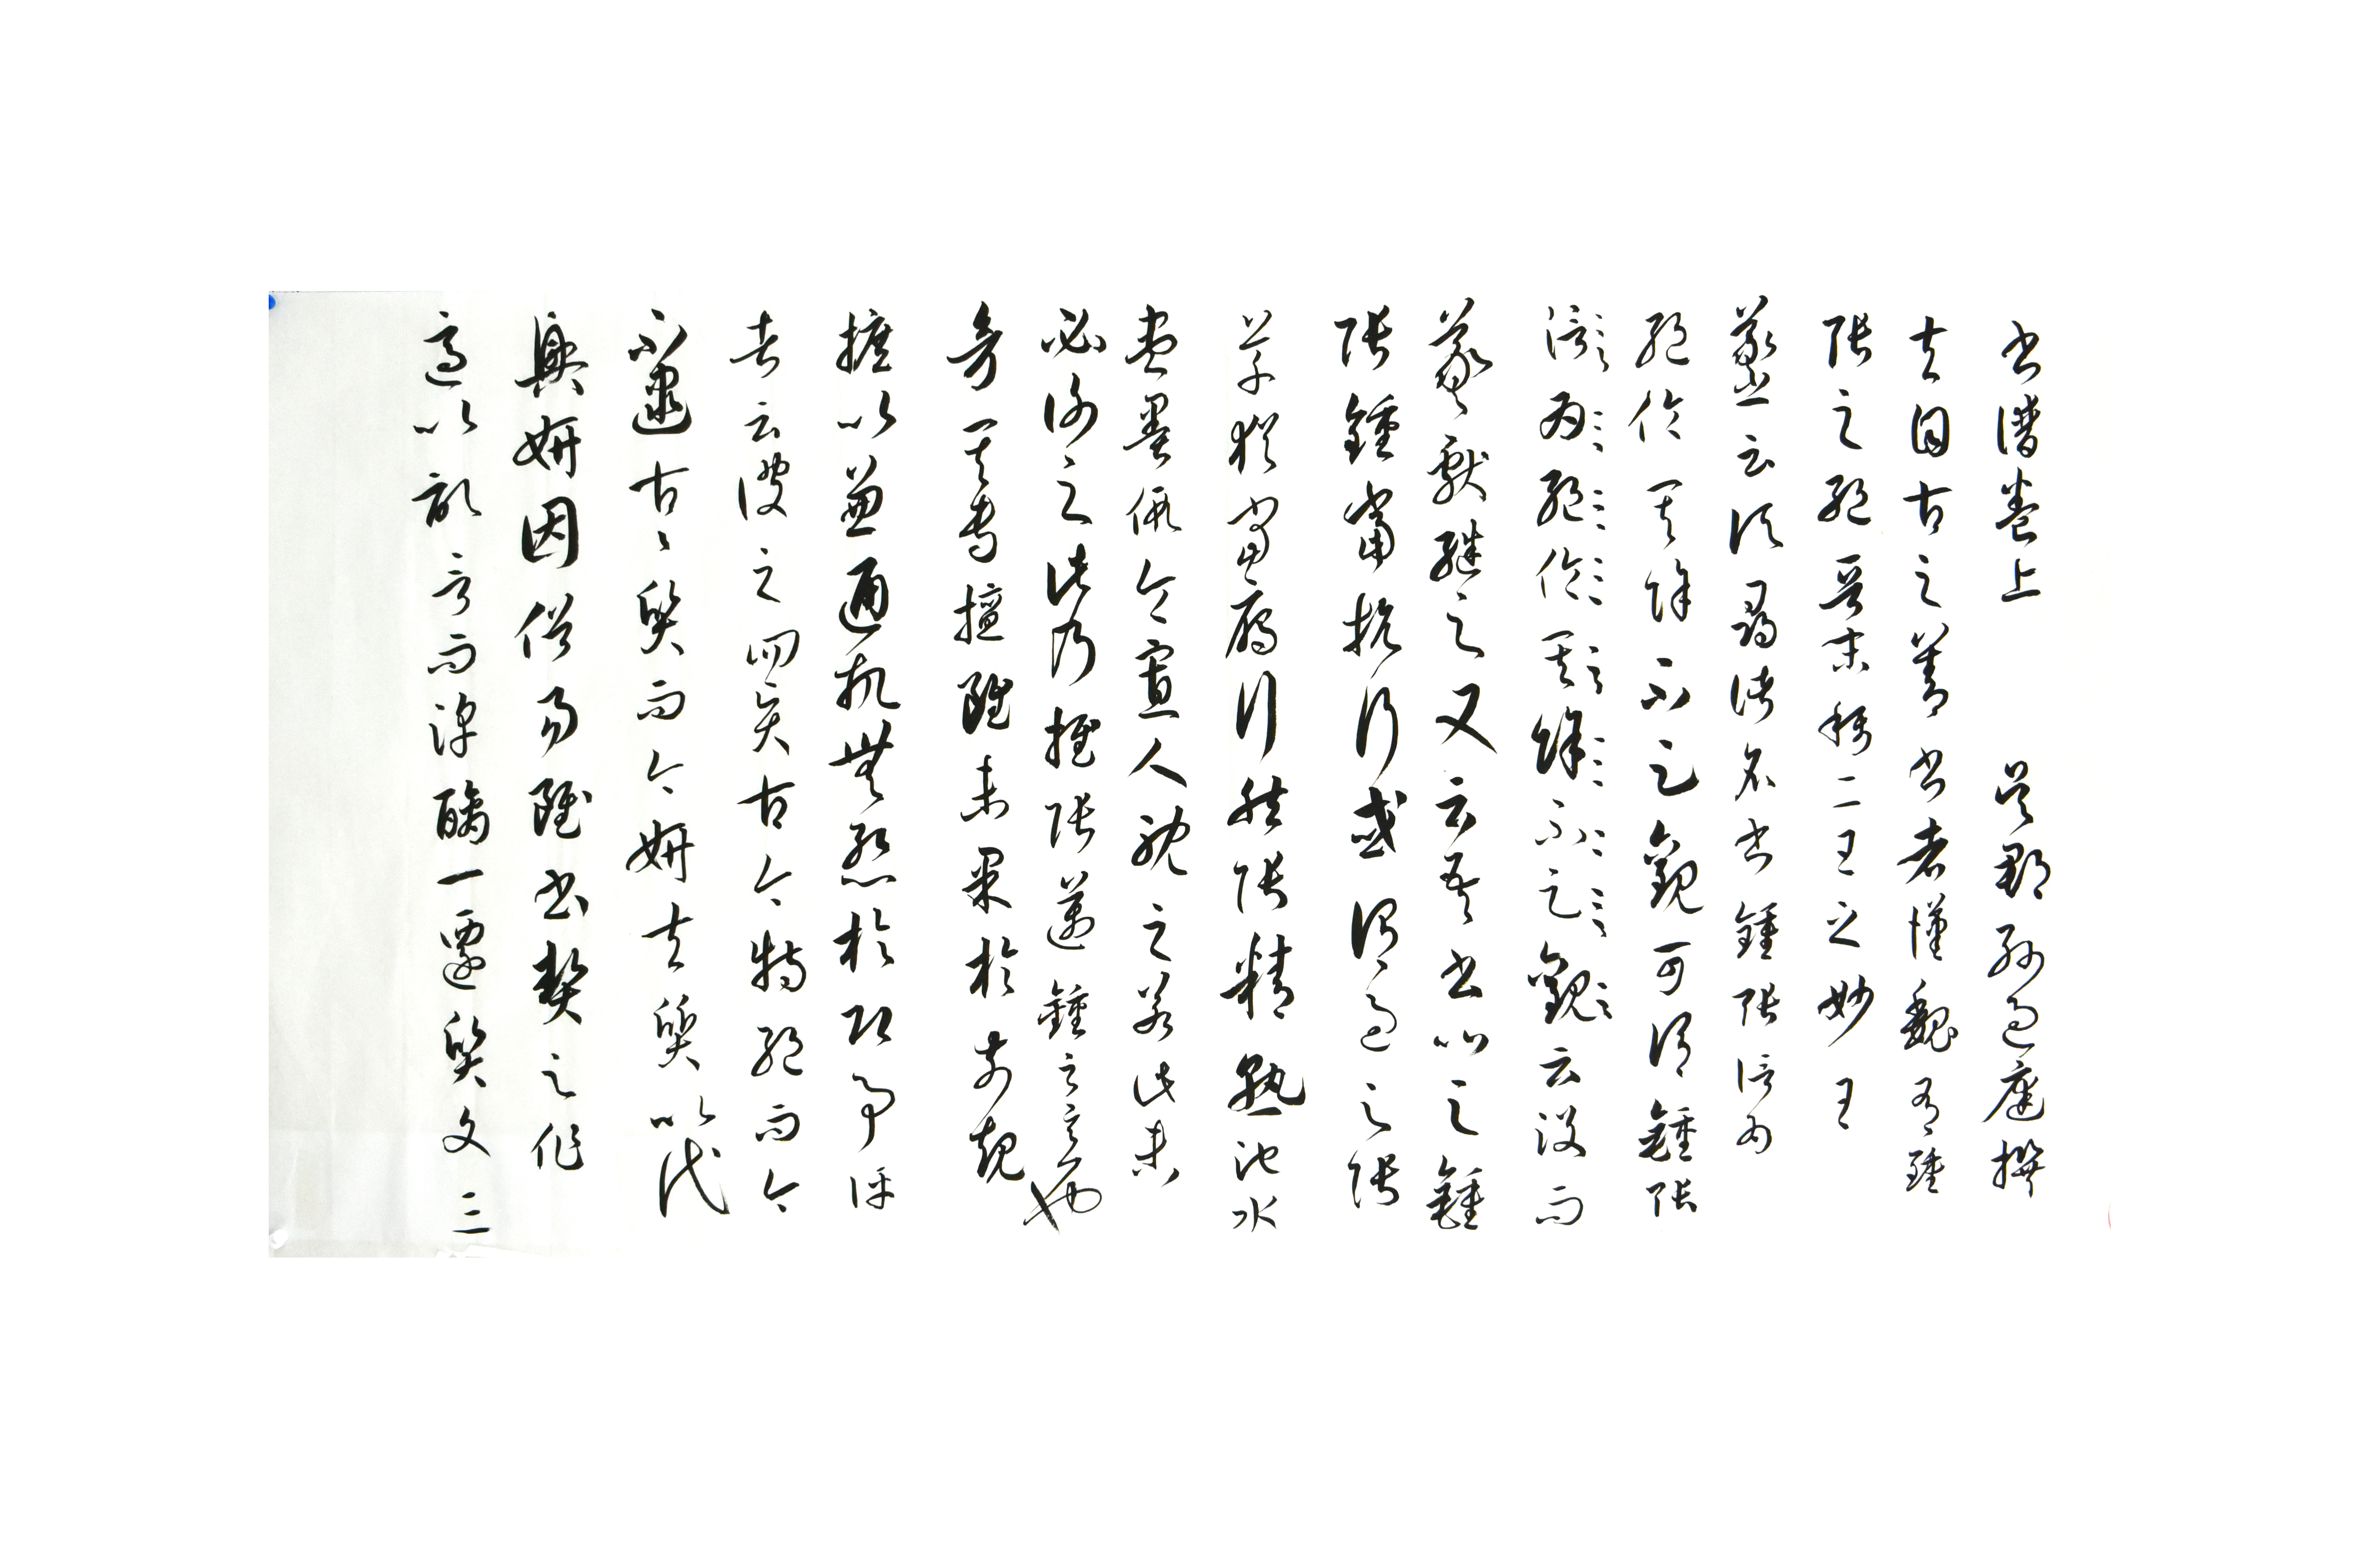 书谱卷上 吴郡孙过庭撰
夫自古之善书者汉魏有钟
张之绝晋末称二王之妙王
羲之云顷寻诸名书钟张信为
绝伦其余不足观可谓钟张
信为绝伦其余不足观云没而
羲献继之又云吾书比之钟
张钟当抗行或谓过之张
草犹当雁行然张精熟池水
尽墨假令寡人耽之若此未
必谢之此乃推张迈钟之意也
考其专擅虽未果于前规
摭以兼通故无惭于即事评
者云彼之四贤古今特绝而今
不逮古古质而今妍夫质以代
兴妍因俗易虽书契之作
适以记言而淳醨一迁质文三